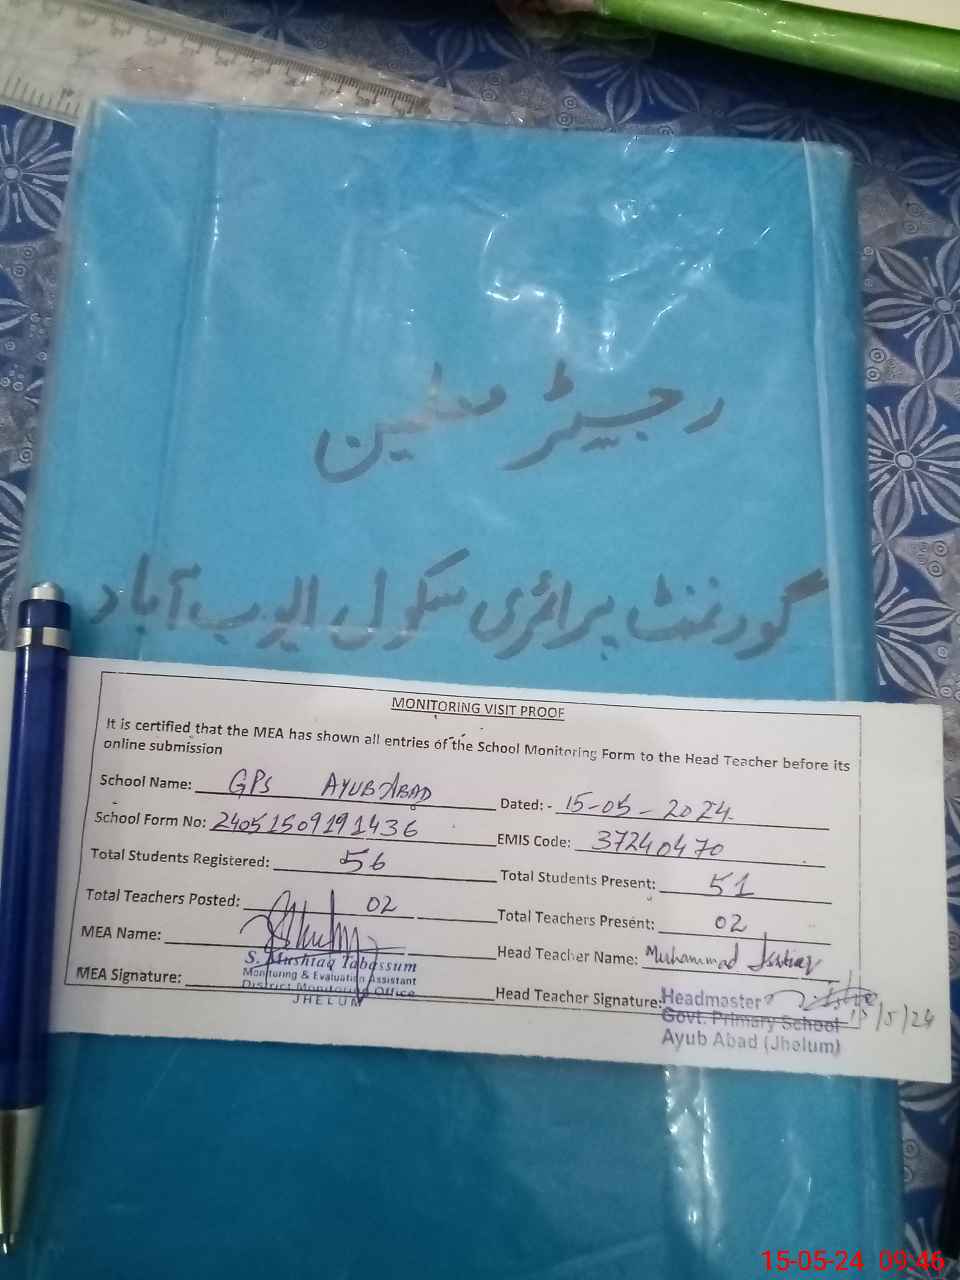 رجسٹر معلمین
گورنمنٹ پرائمری سکول ایوب آباد
MONITORING VISIT PROOF
It is certified that the MEA has shown all entries of the School Monitoring Form to the Head Teacher before its
online submission
School Name: GPS AYUB ABAD Dated: - 15-05-2024
School Form No: 24051509191436 EMIS Code: 37240470
Total Students Registered: 56 Total Students Present: 51
Total Teachers Posted: 02 Total Teachers Present: 02
MEA Name: Head Teacher Name: Muhammad
S. Mushtaq Tabassum
Monitoring & Evaluation Assistant
District Monitoring Office
JHELUM
MEA Signature: Head Teacher Signature:
Headmaster
Govt. Primary School
Ayub Abad (Jhelum)
15/5/24
15-05-24 09:46